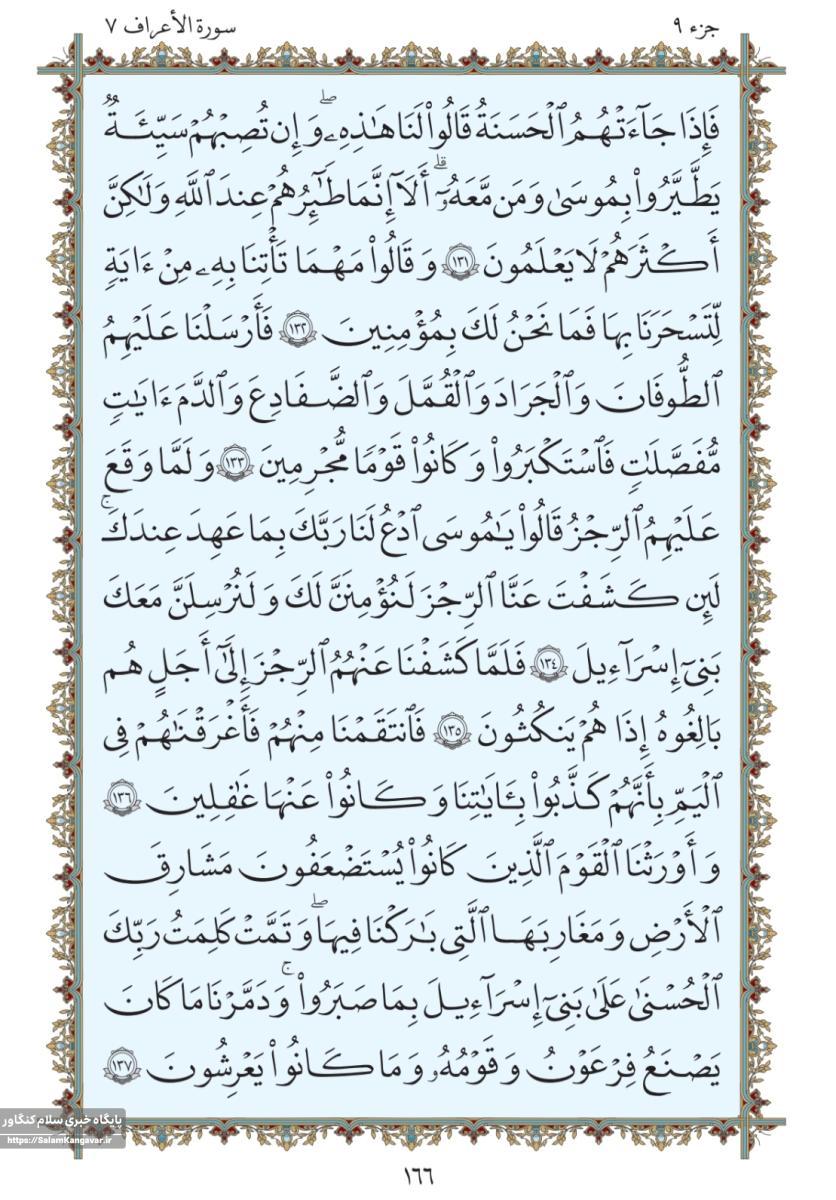 جزء ٩
سورة الأعراف ٧
فَإِذَا جَآءَتْهُمُ ٱلْحَسَنَةُ قَالُوا۟ لَنَا هَـٰذِهِۦ ۖ وَإِن تُصِبْهُمْ سَيِّئَةٌ
يَطَّيَّرُوا۟ بِمُوسَىٰ وَمَن مَّعَهُۥٓ ۗ أَلَآ إِنَّمَا طَـٰٓئِرُهُمْ عِندَ ٱللَّهِ وَلَـٰكِنَّ
أَكْثَرَهُمْ لَا يَعْلَمُونَ ١٣١ وَقَالُوا۟ مَهْمَا تَأْتِنَا بِهِۦ مِنْ ءَايَةٍ
لِّتَسْحَرَنَا بِهَا فَمَا نَحْنُ لَكَ بِمُؤْمِنِينَ ١٣٢ فَأَرْسَلْنَا عَلَيْهِمُ
ٱلطُّوفَانَ وَٱلْجَرَادَ وَٱلْقُمَّلَ وَٱلضَّفَادِعَ وَٱلدَّمَ ءَايَـٰتٍ
مُّفَصَّلَـٰتٍ فَٱسْتَكْبَرُوا۟ وَكَانُوا۟ قَوْمًا مُّجْرِمِينَ ١٣٣ وَلَمَّا وَقَعَ
عَلَيْهِمُ ٱلرِّجْزُ قَالُوا۟ يَـٰمُوسَى ٱدْعُ لَنَا رَبَّكَ بِمَا عَهِدَ عِندَكَ ۖ
لَئِن كَشَفْتَ عَنَّا ٱلرِّجْزَ لَنُؤْمِنَنَّ لَكَ وَلَنُرْسِلَنَّ مَعَكَ
بَنِىٓ إِسْرَٰٓءِيلَ ١٣٤ فَلَمَّا كَشَفْنَا عَنْهُمُ ٱلرِّجْزَ إِلَىٰٓ أَجَلٍ هُم
بَـٰلِغُوهُ إِذَا هُمْ يَنكُثُونَ ١٣٥ فَٱنتَقَمْنَا مِنْهُمْ فَأَغْرَقْنَـٰهُمْ فِى
ٱلْيَمِّ بِأَنَّهُمْ كَذَّبُوا۟ بِـَٔايَـٰتِنَا وَكَانُوا۟ عَنْهَا غَـٰفِلِينَ ١٣٦
وَأَوْرَثْنَا ٱلْقَوْمَ ٱلَّذِينَ كَانُوا۟ يُسْتَضْعَفُونَ مَشَـٰرِقَ
ٱلْأَرْضِ وَمَغَـٰرِبَهَا ٱلَّتِى بَـٰرَكْنَا فِيهَا ۖ وَتَمَّتْ كَلِمَتُ رَبِّكَ
ٱلْحُسْنَىٰ عَلَىٰ بَنِىٓ إِسْرَٰٓءِيلَ بِمَا صَبَرُوا۟ ۖ وَدَمَّرْنَا مَا كَانَ
يَصْنَعُ فِرْعَوْنُ وَقَوْمُهُۥ وَمَا كَانُوا۟ يَعْرِشُونَ ١٣٧
پایگاه خبری سلام کنگاور
https://SalamKangavar.ir
١٦٦